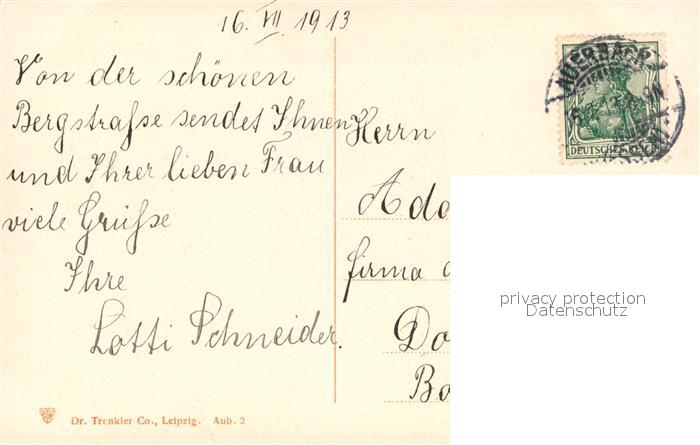 16. VII. 1913
Von der schönen
Bergstraſse sendet Ihnen
und Ihrer lieben Frau
viele Grüſse
Ihre
Lotti Schneider.
Herrn
Ado
firma
Do
Bo
AUERBACH
DEUTSCHES REICH
privacy protection
Datenschutz
Dr. Trenkler Co., Leipzig. Aub. 2